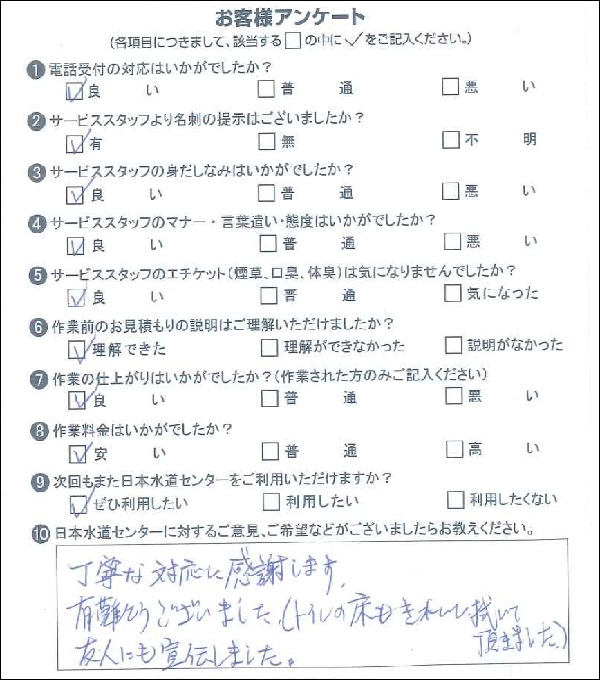 お客様アンケート
(各項目につきまして、該当する□の中に✓をご記入ください。)
❶電話受付の対応はいかがでしたか?
☑良い □普通 □悪い
❷サービススタッフより名刺の提示はございましたか?
☑有 □無 □不明
❸サービススタッフの身だしなみはいかがでしたか?
☑良い □普通 □悪い
❹サービススタッフのマナー・言葉遣い・態度はいかがでしたか?
☑良い □普通 □悪い
❺サービススタッフのエチケット(煙草、口臭、体臭)は気になりませんでしたか?
☑良い □普通 □気になった
❻作業前のお見積もりの説明はご理解いただけましたか?
☑理解できた □理解ができなかった □説明がなかった
❼作業の仕上がりはいかがでしたか?(作業された方のみご記入ください)
☑良い □普通 □悪い
❽作業料金はいかがでしたか?
☑安い □普通 □高い
❾次回もまた日本水道センターをご利用いただけますか?
☑ぜひ利用したい □利用したい □利用したくない
❿日本水道センターに対するご意見、ご希望などがございましたらお教えください。
丁寧な対応に感謝します。
有難とうございました。(トイレの床もきれいに拭いて
頂きました。)
友人にも宣伝しました。